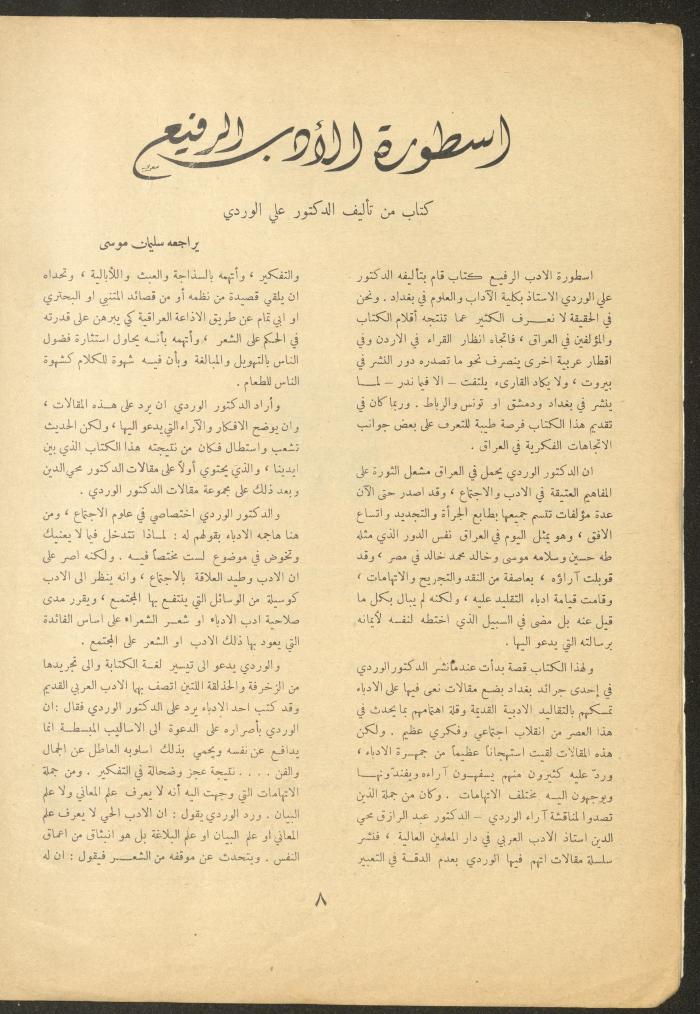 اسطورة الأدب الرفيع
كتاب من تأليف الدكتور علي الوردي
يراجعه سليمان موسى
اسطورة الادب الرفيع كتاب قام بتأليفه الدكتور
علي الوردي الاستاذ بكلية الآداب والعلوم في بغداد . ونحن
في الحقيقة لا نعرف الكثير عما تنتجه أقلام الكتاب
والمؤلفين في العراق ، فاتجاه انظار القراء في الاردن وفي
اقطار عربية اخرى ينصرف نحو ما تصدره دور النشر في
بيروت ، ولا يكاد القارىء يلتفت – الا فيما ندر – لما
ينشر في بغداد ودمشق او تونس والرباط . وربما كان في
تقديم هذا الكتاب فرصة طيبة للتعرف على بعض جوانب
الاتجاهات الفكرية في العراق .
ان الدكتور الوردي يحمل في العراق مشعل الثورة على
المفاهيم العتيقة في الادب والاجتماع ، وقد اصدر حتى الآن
عدة مؤلفات تتسم جميعها بطابع الجرأة والتجديد واتساع
الافق ، وهو يمثل اليوم في العراق نفس الدور الذي مثله
طه حسين وسلامه موسى وخالد محمد خالد في مصر ، وقد
قوبلت آراؤه ، بعاصفة من النقد والتجريح والاتهامات ،
وقامت قيامة ادباء التقليد عليه ، ولكنه لم يبال بكل ما
قيل عنه بل مضى في السبيل الذي اختطه لنفسه لأيمانه
برسالته التي يدعو اليها .
ولهذا الكتاب قصة بدأت عندما نشر الدكتور الوردي
في إحدى جرائد بغداد بضع مقالات نعى فيها على الادباء
تمسكهم بالتقاليد الادبية القديمة وقلة اهتمامهم بما يحدث في
هذا العصر من انقلاب اجتماعي وفكري عظيم . ولكن
هذه المقالات لقيت استهجاناً عظيماً من جمهرة الادباء ،
وردّ عليه كثيرون منهم يسفهون آراءه ويفندونها
ويوجهون اليه مختلف الاتهامات . وكان من جملة الذين
تصدوا لمناقشة آراء الوردي – الدكتور عبد الرازق محي
الدين استاذ الادب العربي في دار المعلمين العالية ، فنشر
سلسلة مقالات اتهم فيها الوردي بعدم الدقة في التعبير
والتفكير ، وأتهمه بالسذاجة والعبث واللأبالية ، وتحداه
ان يلقي قصيدة من نظمه أو من قصائد المتنبي او البحتري
او ابي تمام عن طريق الاذاعة العراقية كي يبرهن على قدرته
في الحكم على الشعر ، وأتهمه بأنه يحاول استثارة فضول
الناس بالتهويل والمبالغة وبأن فيه شهوة للكلام كشهوة
الناس للطعام .
وأراد الدكتور الوردي ان يرد على هذه المقالات ،
وان يوضح الافكار والآراء التي يدعو اليها ، ولكن الحديث
تشعب واستطال فكان من نتيجته هذا الكتاب الذي بين
ايدينا ، والذي يحتوي أولاً على مقالات الدكتور محي الدين
وبعد ذلك على مجموعة مقالات الدكتور الوردي .
والدكتور الوردي اختصاصي في علوم الاجتماع ، ومن
هنا هاجمه الادباء بقولهم له : لماذا تتدخل فيما لا يعنيك
وتخوض في موضوع لست مختصاً فيه . ولكنه اصر على
ان الادب وطيد العلاقة بالاجتماع ، وانه ينظر الى الادب
كوسيلة من الوسائل التي ينتفع بها المجتمع ، ويقرر مدى
صلاحية ادب الادباء او شعر الشعراء على اساس الفائدة
التي يعود بها ذلك الادب او الشعر على المجتمع .
والوردي يدعو الى تيسير لغة الكتابة والى تجريدها
من الزخرفة والحذلقة اللتين اتصف بها الادب العربي القديم
وقد كتب احد الادباء يرد على الدكتور الوردي فقال : ان
الوردي بأصراره على الدعوة الى الاساليب المبسطة انما
يدافع عن نفسه ويحمي بذلك اسلوبه العاطل عن الجمال
والفن . . . . نتيجة عجز وضحالة في التفكير . ومن جملة
الاتهامات التي وجهت اليه أنه لا يعرف علم المعاني ولا علم
البيان . ورد الوردي يقول : ان الادب الحي لا يعرف علم
المعاني او علم البيان او علم البلاغة بل هو انبثاق من اعماق
النفس . ويتحدث عن موقفه من الشعر فيقول : ان له
٨